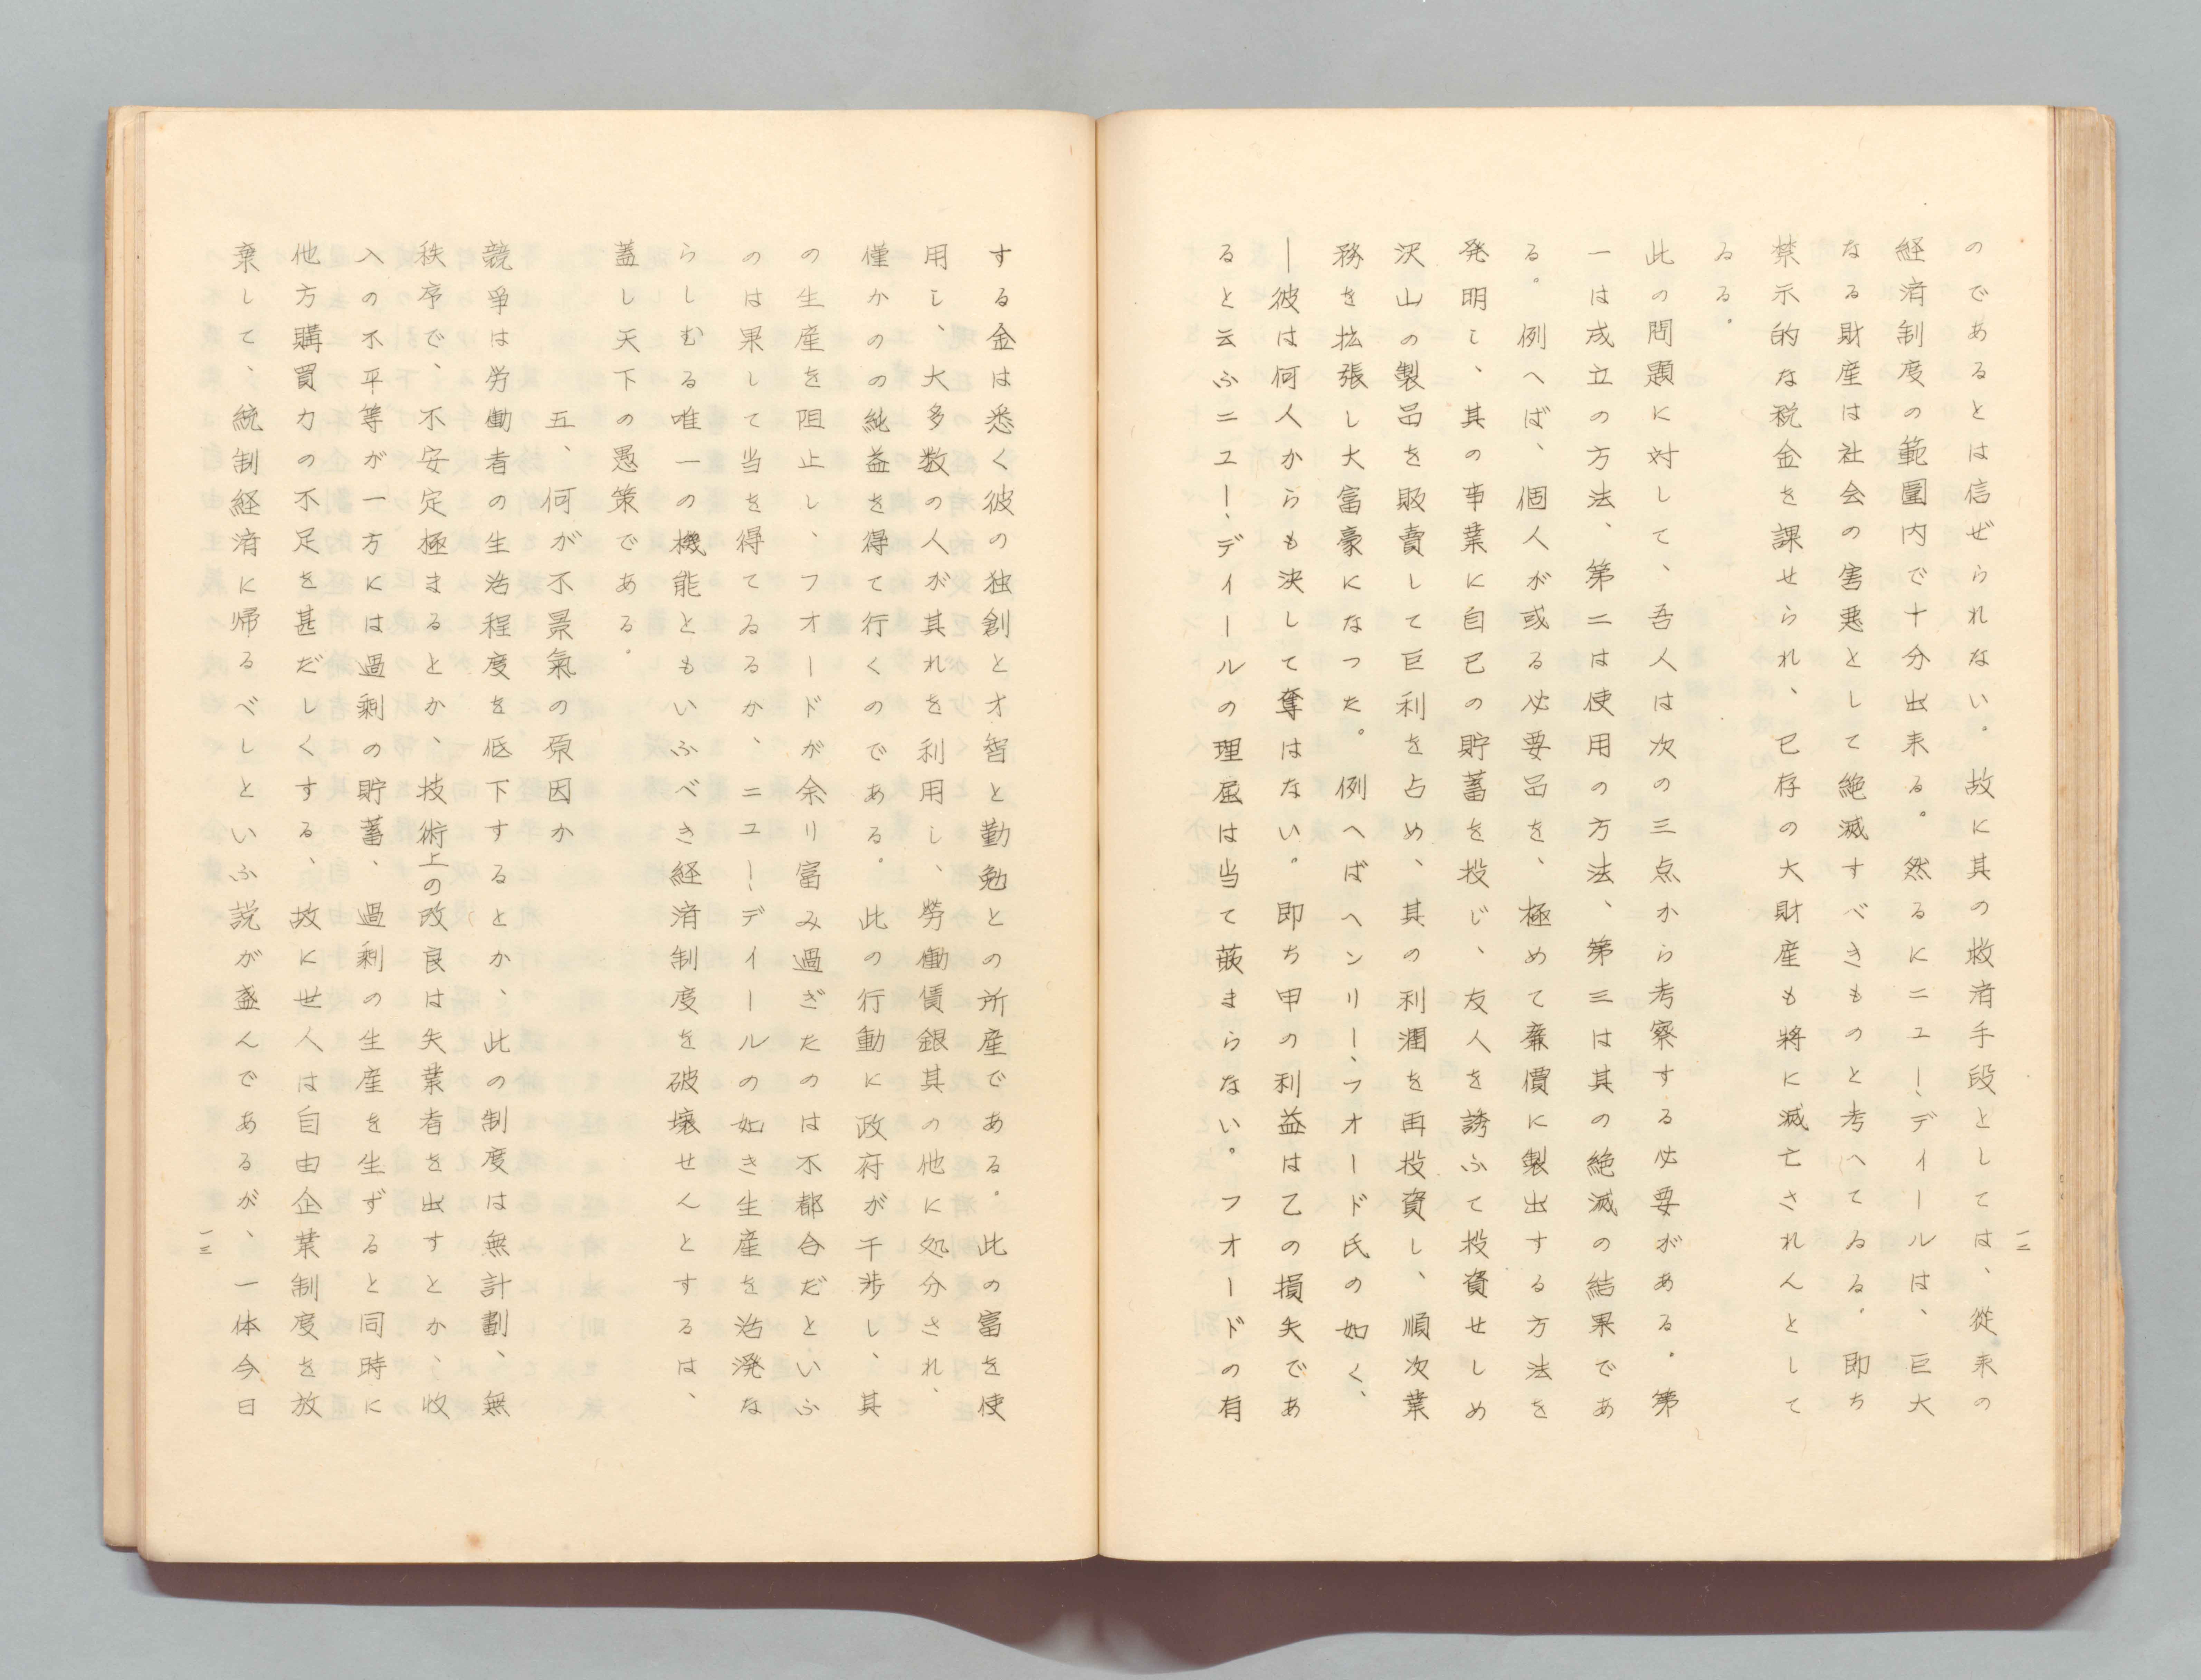 のであるとは信ぜられない。故に其の救済手段としては、従来の
経済制度の範囲内で十分出来る。然るにニユー、デイールは、巨大
なる財産は社会の害悪として絶滅すべきものと考へてゐる。即ち
禁示的な税金を課せられ、已存の大財産も将に滅亡されんとして
ゐる。
此の問題に対して、吾人は次の三点から考察する必要がある。第
一は成立の方法、第二は使用の方法、第三は其の絶滅の結果であ
る。例へば、個人が或る必要品を、極めて廉價に製出する方法を
発明し、其の事業に自己の貯蓄を投じ、友人を誘ふて投資せしめ
沢山の製品を販賣して巨利を占め、其の利潤を再投資し、順次業
務を拡張し大富豪になつた。例へばヘンリー、フオード氏の如く、
―彼は何人からも決して奪はない。即ち甲の利益は乙の損失であ
ると云ふニユー、デイールの理屈は当て蒃まらない。フオードの有
一二
する金は悉く彼の独創と才智と勤勉との所産である。此の富を使
用し、大多数の人が其れを利用し、勞働賃銀其の他に処分され、
僅かのの純益を得て行くのである。此の行動に政府が干渉し、其
の生産を阻止し、フオードが余り富み過ぎたのは不都合だといふ
のは果して当を得てゐるか、ニユー、デイールの如き生産を活溌な
らしむる唯一の機能ともいふべき経済制度を破壊せんとするは、
蓋し天下の愚策である。
五、何が不景氣の原因か
競爭は労働者の生活程度を低下するとか、此の制度は無計劃、無
秩序で、不安定極まるとか、技術上の改良は失業者を出すとか、收
入の不平等が一方には過剰の貯蓄、過剰の生産を生ずると同時に
他方購買力の不足を甚だしくする、故に世人は自由企業制度を放
棄して、統制経済に帰るべしといふ説が盛んであるが、一体今日
一三